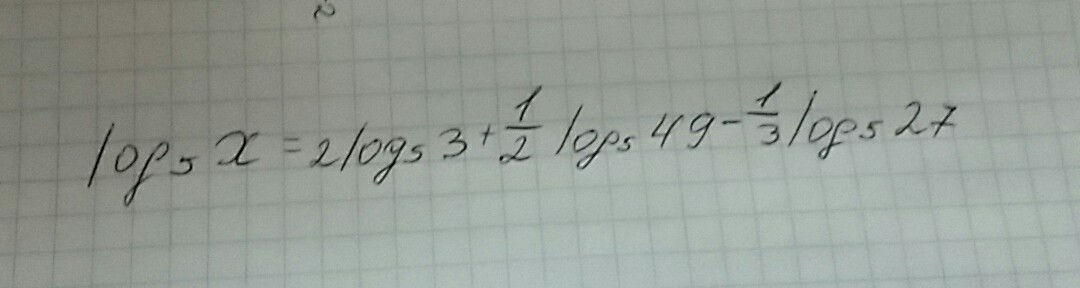 log₅ x = 2log₅ 3 + 1/2 log₅ 49 - 1/3 log₅ 27